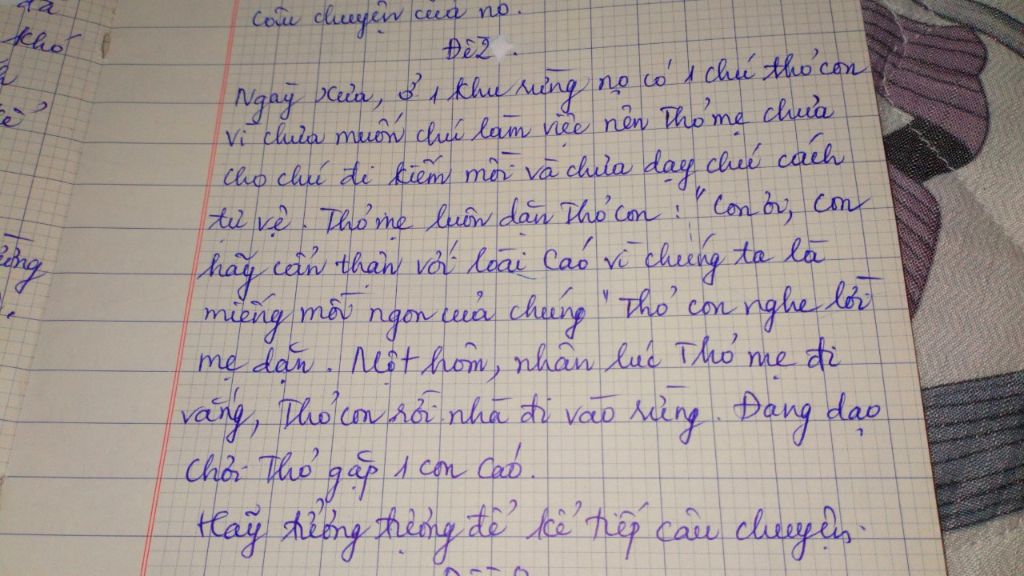 câu chuyện của nó.
Đề 2.
Ngày xưa, ở 1 khu rừng nọ có 1 chú thỏ con
vì chưa muốn chú làm việc nên Thỏ mẹ chưa
cho chú đi kiếm mồi và chưa dạy chú cách
tự vệ. Thỏ mẹ luôn dặn Thỏ con : "Con ơi, con
hãy cẩn thận với loài Cáo vì chúng ta là
miếng mồi ngon của chúng" Thỏ con nghe lời
mẹ dặn. Một hôm, nhân lúc Thỏ mẹ đi
vắng, Thỏ con rời nhà đi vào rừng. Đang dạo
chơi Thỏ gặp 1 con Cáo.
Hãy tưởng tượng để kể tiếp câu chuyện.
khó